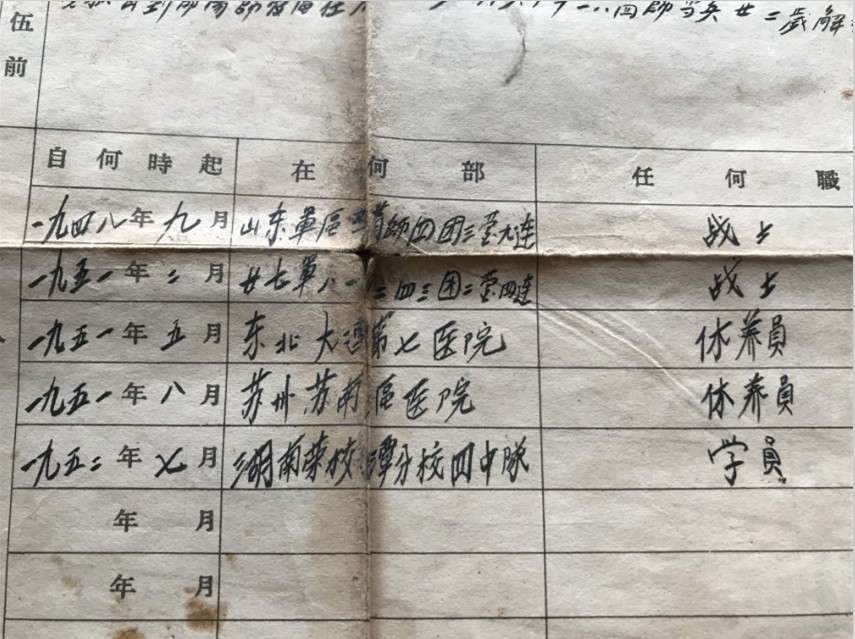 伍
前
師當兵廿二歲解
自何時起 在何部 任何職
一九四八年九月 山东軍區 師四团三营九连 战士
一九五一年二月 廿七軍八一 二四三团二营四连 战士
一九五一年五月 东北大 第七医院 休养员
一九五一年八月 苏州苏南區医院 休养員
一九五二年七月 湖南荣校 潭分校四中隊 学員
年 月
年 月